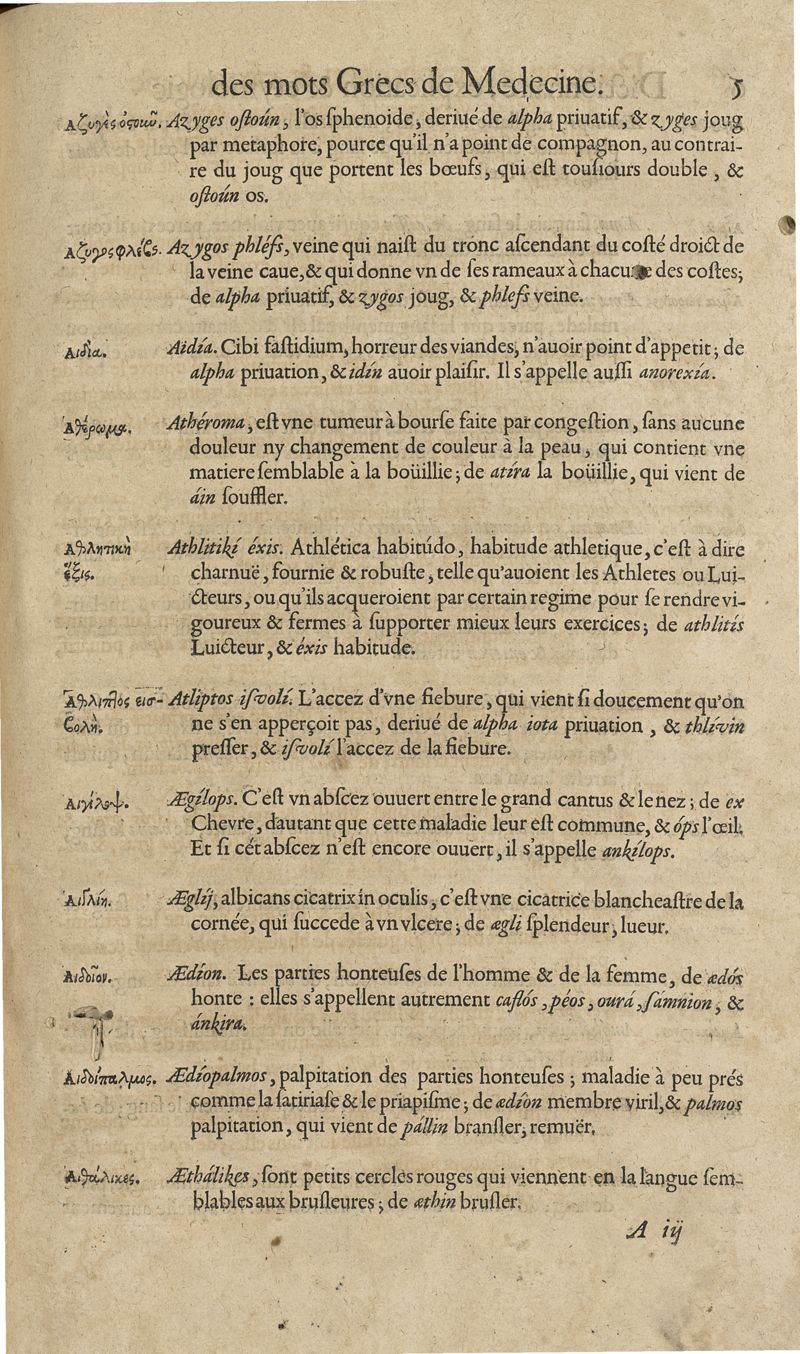 des mots Grecs de Medecine. 5
Αζυγὲς ὀστοῦν. Azyges ostoún, l'os sphenoide, deriué de alpha priuatif, & zyges joug
par metaphore, pource qu'il n'a point de compagnon, au contrai-
re du joug que portent les bœufs, qui est tousiours double, &
ostoún os.
Αζυγος φλέϐς. Azygos phléfis, veine qui naist du tronc ascendant du costé droict de
la veine caue, & qui donne vn de ses rameaux à chacune des costes;
de alpha priuatif, & zygos joug, & phlefis veine.
Αιδία. Aidía. Cibi fastidium, horreur des viandes, n'auoir point d'appetit; de
alpha priuation, & idín auoir plaisir. Il s'appelle aussi anorexía.
Ἀθέρωμα. Athéroma, est vne tumeur à bourse faite par congestion, sans aucune
douleur ny changement de couleur à la peau, qui contient vne
matiere semblable à la boüillie; de atíra la boüillie, qui vient de
áin souffler.
Αθλητικὴ Athlitikí éxis. Athlética habitúdo, habitude athletique, c'est à dire
ἕξις. charnuë, fournie & robuste, telle qu'auoient les Athletes ou Lui-
cteurs, ou qu'ils acqueroient par certain regime pour se rendre vi-
goureux & fermes à supporter mieux leurs exercices; de athlitís
Luicteur, & éxis habitude.
Ἄθλιπτος εισ- Atliptos isvolí. L'accez d'vne fiebure, qui vient si doucement qu'on
ϐολὴ. ne s'en apperçoit pas, deriué de alpha iota priuation, & thlívin
presser, & isvolí l'accez de la fiebure.
Αιγίλωψ. Ægílops. C'est vn abscez ouuert entre le grand cantus & le nez; de ex
Chevre, d'autant que cette maladie leur est commune, & óps l'œil.
Et si cét abscez n'est encore ouuert, il s'appelle ankílops.
Αἰγλίη. Æglij, albicans cicatrix in oculis, c'est vne cicatrice blancheastre de la
cornée, qui succede à vn vlcere; de ægli splendeur, lueur.
Αιδοῖον. Ædíon. Les parties honteuses de l'homme & de la femme, de ædós
honte : elles s'appellent autrement caflós, péos, ourá, samnion, &
ánkira.
Αιδοίπαλμος. Ædíopalmos, palpitation des parties honteuses; maladie à peu prés
comme la satiriase & le priapisme; de ædíon membre viril, & palmos
palpitation, qui vient de pállin bransler, remuër.
Αιθάλικες. Æthálikes, sont petits cercles rouges qui viennent en la langue sem-
blables aux brusleures; de æthin brusler.
A iij